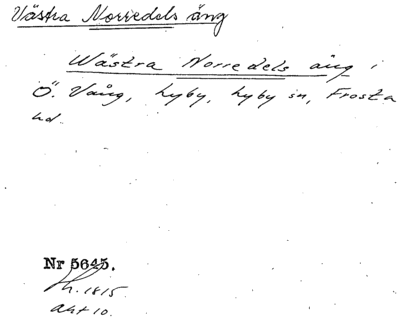 Västra Norredels äng
Wästra Norredels äng i
Ö. Vång, Lyby, Lyby sn, Frosta
hd.
Nr 5645.
Sk. 1815
akt 10.